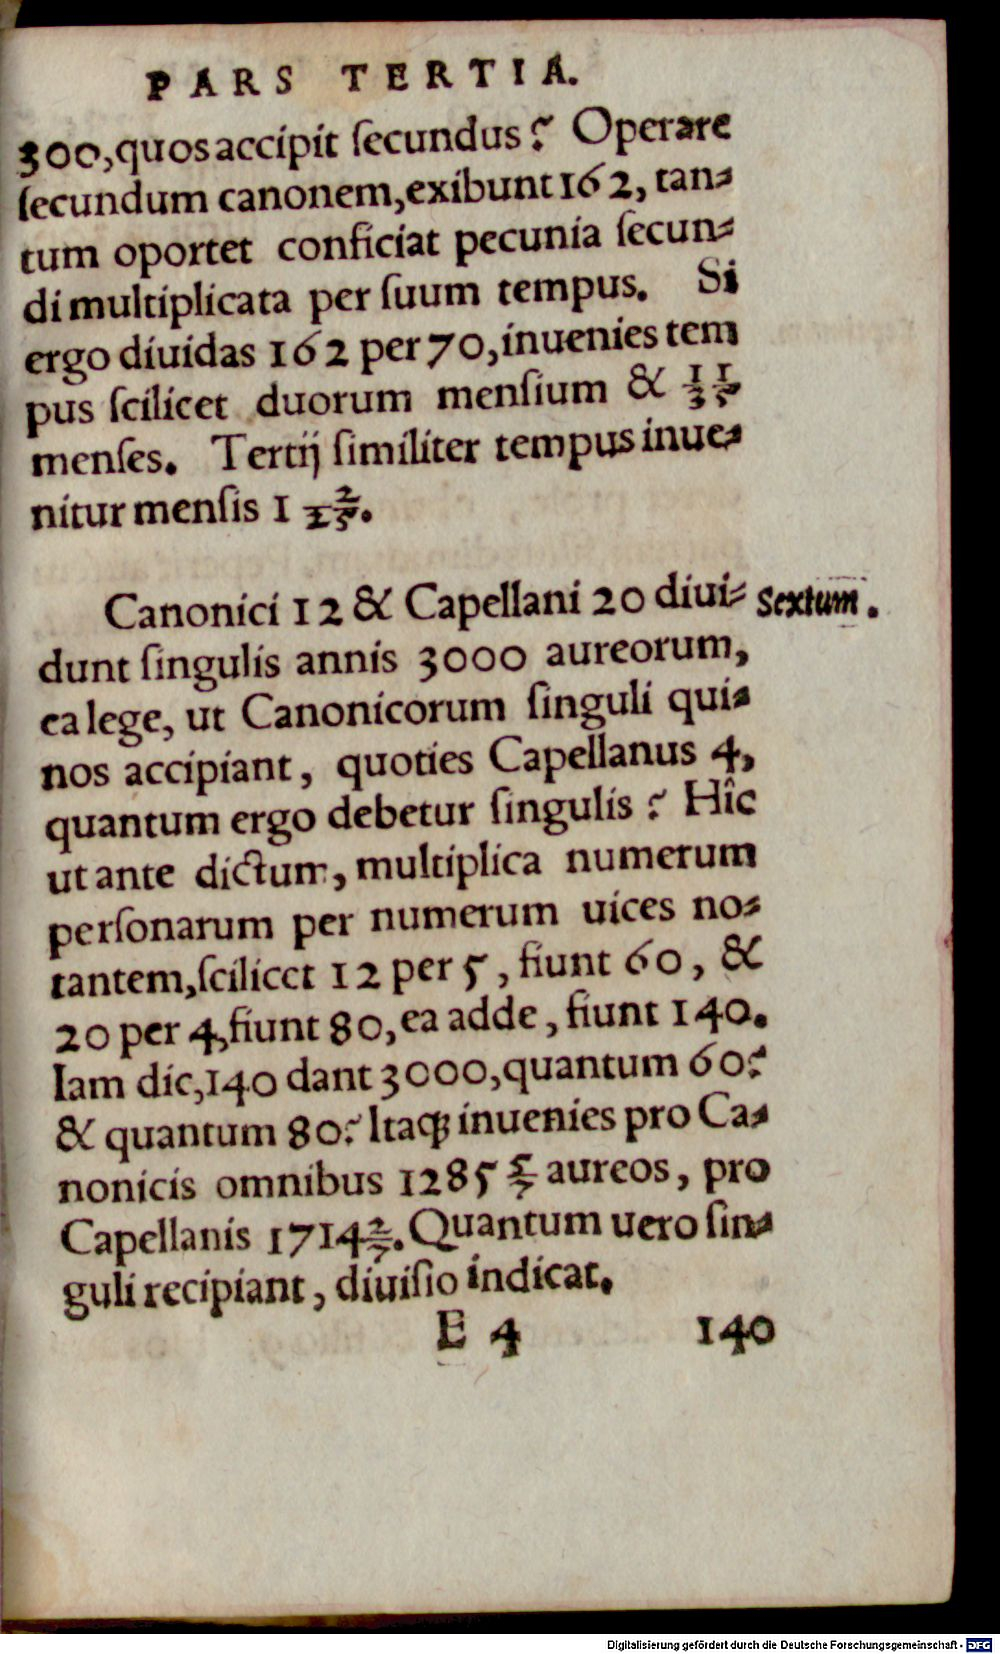 PARS TERTIA.
300, quos accipit ſecundus? Operare
ſecundum canonem, exibunt 162, tan-
tum oportet conficiat pecunia ſecun-
di multiplicata per ſuum tempus. Si
ergo diuidas 162 per 70, inuenies tem
pus ſcilicet duorum menſium & 11/35
menſes. Tertij ſimiliter tempus inue-
nitur menſis 1 2/25.
Canonici 12 & Capellani 20 diui-
Sextum.
dunt ſingulis annis 3000 aureorum,
ea lege, ut Canonicorum ſinguli qui-
nos accipiant, quoties Capellanus 4,
quantum ergo debetur ſingulis? Hîc
ut ante dictum, multiplica numerum
perſonarum per numerum uices no-
tantem, ſcilicet 12 per 5, fiunt 60, &
20 per 4, fiunt 80, ea adde, fiunt 140.
Iam dic, 140 dant 3000, quantum 60?
& quantum 80? Itaq; inuenies pro Ca-
nonicis omnibus 1285 5/7 aureos, pro
Capellanis 1714 2/7. Quantum uero ſin-
guli recipiant, diuiſio indicat.
E 4 140
Digitalisierung gefördert durch die Deutsche Forschungsgemeinschaft - DFG